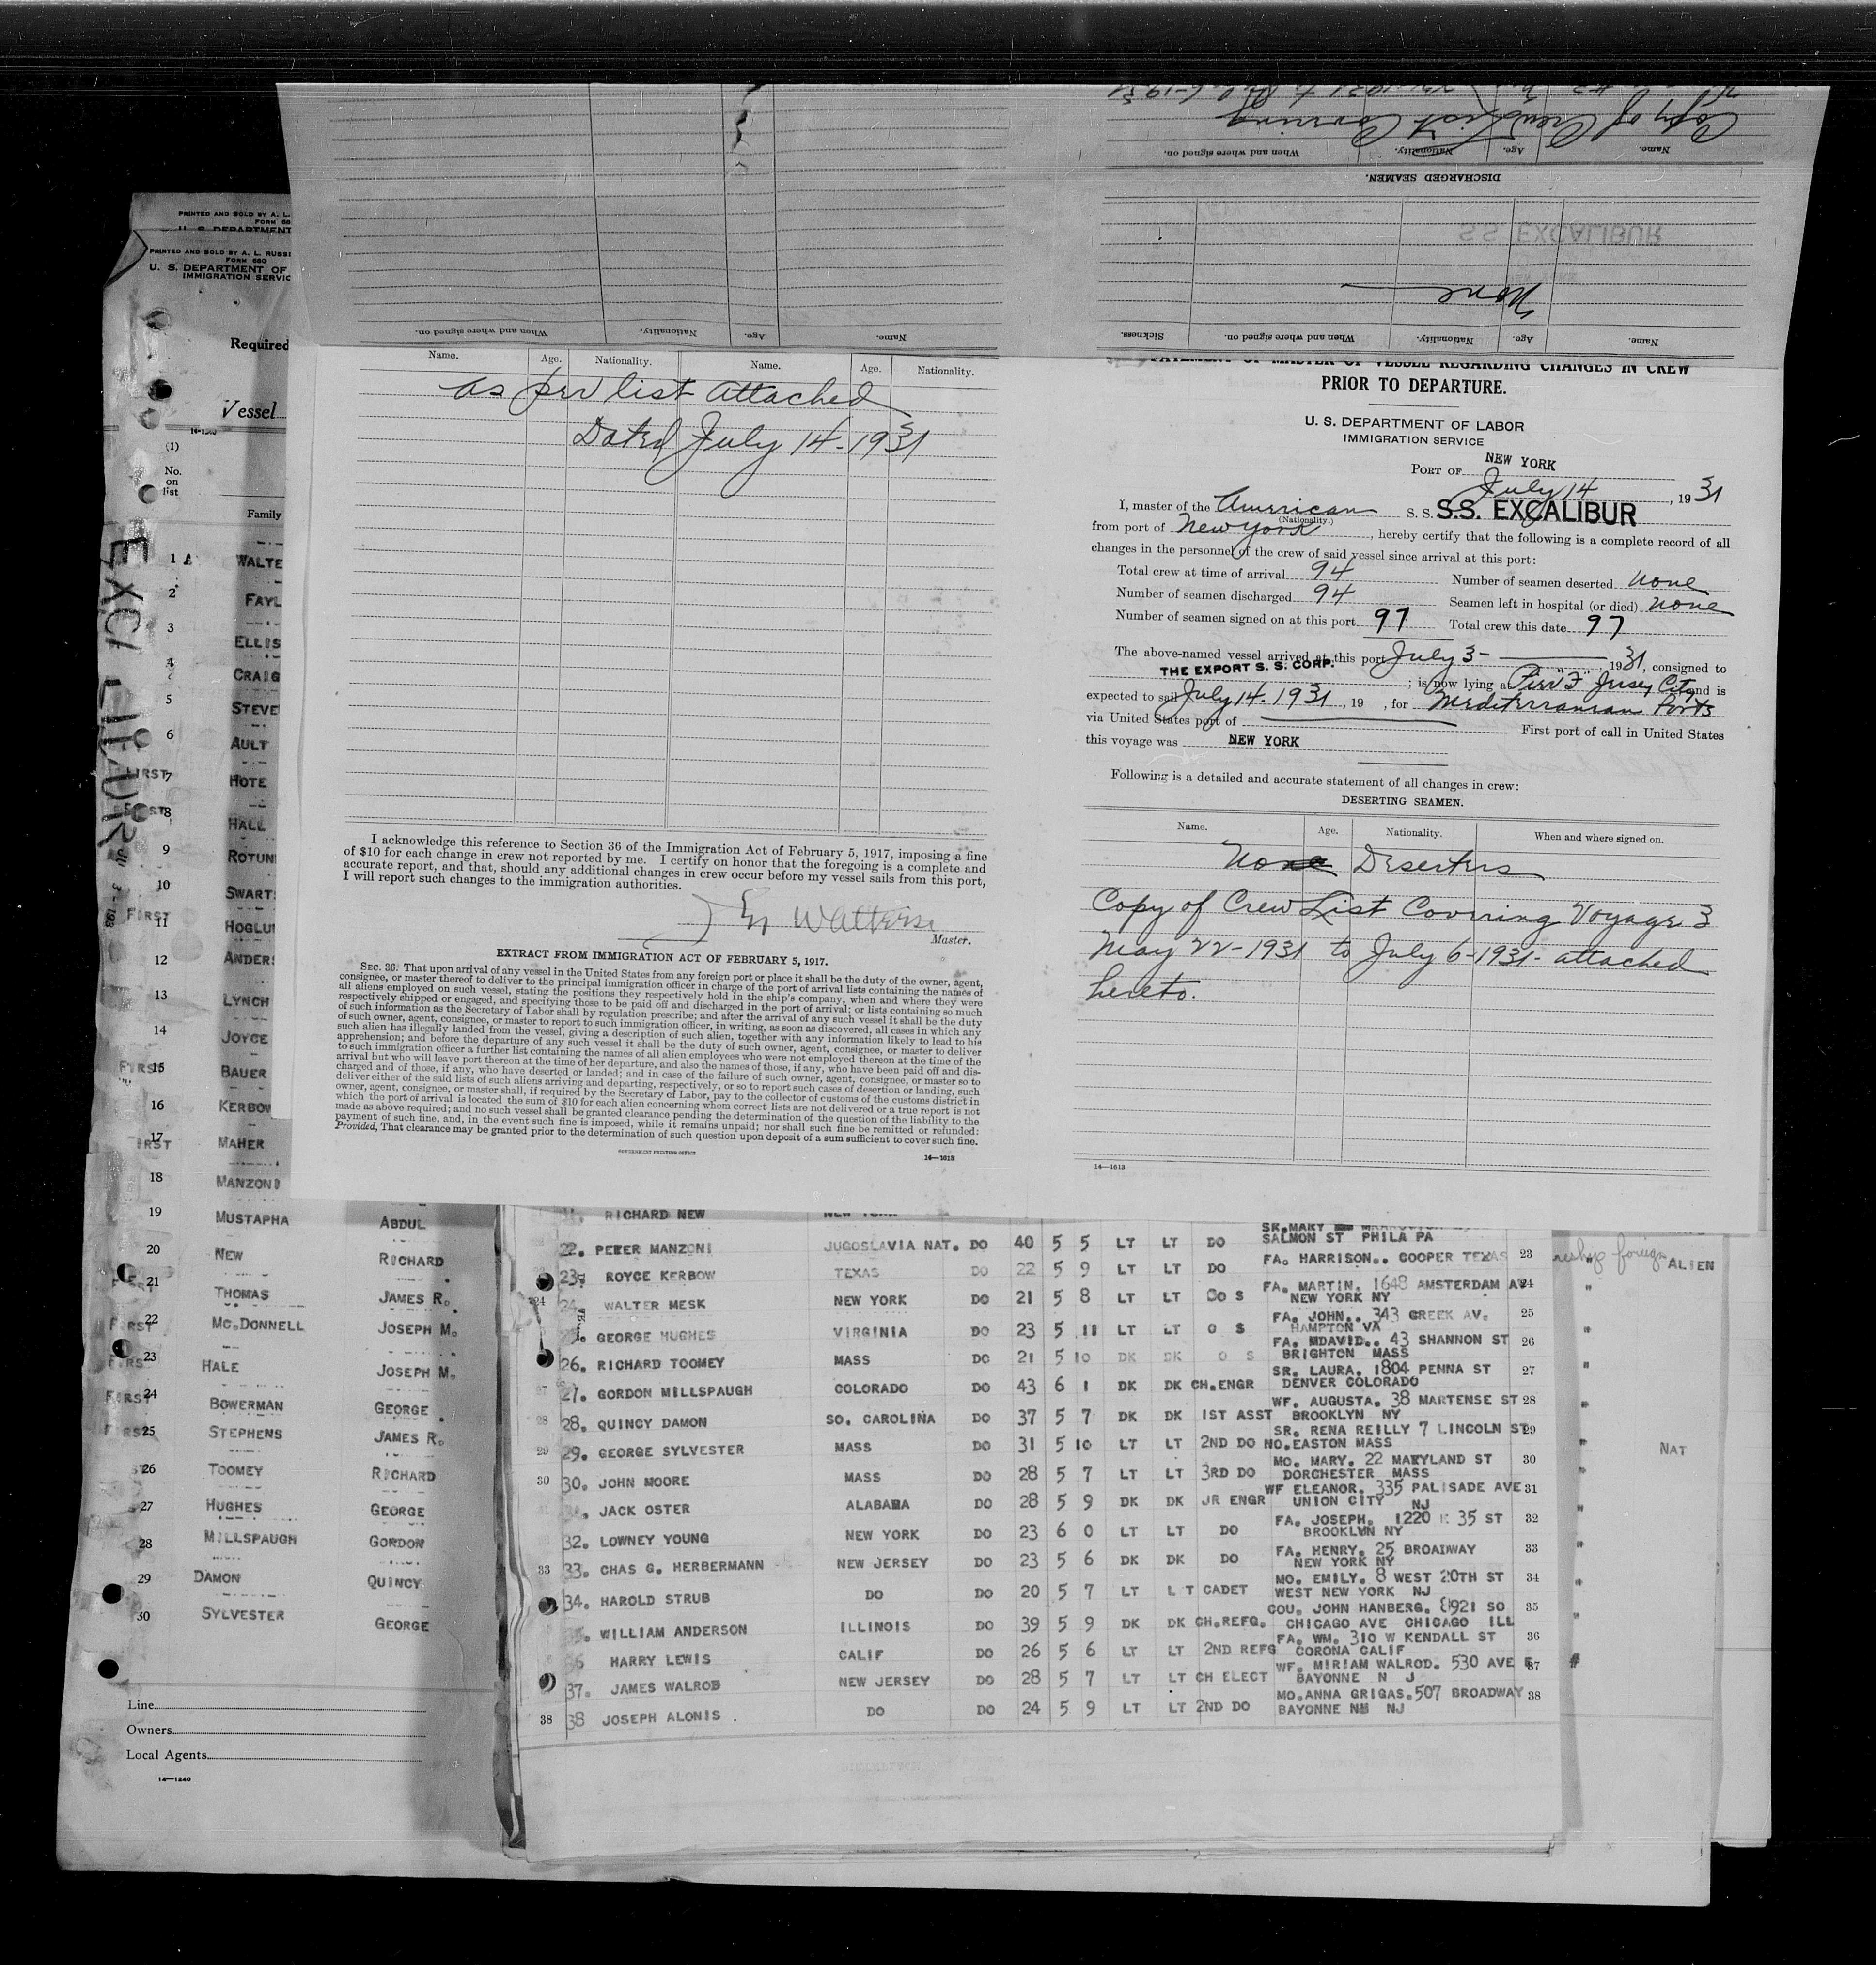 Copy of Crew List Covering
Name. Age. Nationality. When and where signed on.
DISCHARGED SEAMEN.
S.S. EXCALIBUR
None
Name. Age. Nationality. When and where signed on. Sickness.
Name. Age. Nationality. When and where signed on.
PRINTED AND SOLD BY A. L.
U. S. DEPARTMENT
PRINTED AND SOLD BY A. L. RUSS
FORM 680
U. S. DEPARTMENT OF
IMMIGRATION SERVIC
Required
Vessel
14-1240
(1)
No.
on
list
Family
EXCALIBUR
1 WALTE
2 FAYL
3 ELLIS
4 CRAIG
5 STEVE
6 AULT
FIRST 7 HOTE
8 HALL
9 ROTUN
10 SWART
FIRST 11 HOGLU
12 ANDERS
13 LYNCH
14 JOYCE
FIRST 15 BAUER
16 KERBOW
FIRST 17 MAHER
18 MANZONI
19 MUSTAPHA ABDUL
20 NEW RICHARD
21 THOMAS JAMES R.
FIRST 22 MC.DONNELL JOSEPH M.
23 HALE JOSEPH M.
FIRST 24 BOWERMAN GEORGE
25 STEPHENS JAMES R.
26 TOOMEY RICHARD
27 HUGHES GEORGE
28 MILLSPAUGH GORDON
29 DAMON QUINCY
30 SYLVESTER GEORGE
Line
Owners
Local Agents
14-1240
Name. Age. Nationality. Name. Age. Nationality.
as per list attached
Dated July 14-1931
I acknowledge this reference to Section 36 of the Immigration Act of February 5, 1917, imposing a fine
of $10 for each change in crew not reported by me. I certify on honor that the foregoing is a complete and
accurate report, and that, should any additional changes in crew occur before my vessel sails from this port,
I will report such changes to the immigration authorities.
Master.
EXTRACT FROM IMMIGRATION ACT OF FEBRUARY 5, 1917.
SEC. 36. That upon arrival of any vessel in the United States from any foreign port or place it shall be the duty of the owner, agent,
consignee, or master thereof to deliver to the principal immigration officer in charge of the port of arrival lists containing the names of
all aliens employed on such vessel, stating the positions they respectively hold in the ship's company, when and where they were
respectively shipped or engaged, and specifying those to be paid off and discharged in the port of arrival; or lists containing so much
of such information as the Secretary of Labor shall by regulation prescribe; and after the arrival of any such vessel it shall be the duty
of such owner, agent, consignee, or master to report to such immigration officer, in writing, as soon as discovered, all cases in which any
such alien has illegally landed from the vessel, giving a description of such alien, together with any information likely to lead to his
apprehension; and before the departure of any such vessel it shall be the duty of such owner, agent, consignee, or master to deliver
to such immigration officer a further list containing the names of all alien employees who were not employed thereon at the time of the
arrival but who will leave port thereon at the time of her departure, and also the names of those, if any, who have been paid off and dis-
charged and of those, if any, who have deserted or landed; and in case of the failure of such owner, agent, consignee, or master so to
deliver either of the said lists of such aliens arriving and departing, respectively, or so to report such cases of desertion or landing, such
owner, agent, consignee, or master shall, if required by the Secretary of Labor, pay to the collector of customs of the customs district in
which the port of arrival is located the sum of $10 for each alien concerning whom correct lists are not delivered or a true report is not
made as above required; and no such vessel shall be granted clearance pending the determination of the question of the liability to the
payment of such fine, and, in the event such fine is imposed, while it remains unpaid; nor shall such fine be remitted or refunded:
Provided, That clearance may be granted prior to the determination of such question upon deposit of a sum sufficient to cover such fine.
GOVERNMENT PRINTING OFFICE
14—1613
STATEMENT OF MASTER OF VESSEL REGARDING CHANGES IN CREW
PRIOR TO DEPARTURE.
U. S. DEPARTMENT OF LABOR
IMMIGRATION SERVICE
PORT OF NEW YORK
July 14, 1931
I, master of the American S. S. S.S. EXCALIBUR
(Nationality.)
from port of New York, hereby certify that the following is a complete record of all
changes in the personnel of the crew of said vessel since arrival at this port:
Total crew at time of arrival 94 Number of seamen deserted none
Number of seamen discharged 94 Seamen left in hospital (or died) none
Number of seamen signed on at this port 97 Total crew this date 97
The above-named vessel arrived at this port July 3-, 1931, consigned to
THE EXPORT S. S. CORP. ; is now lying at Pier "F" Jersey City and is
expected to sail July 14. 1931, 19 , for Mediterranean Ports
via United States port of First port of call in United States
this voyage was NEW YORK
Following is a detailed and accurate statement of all changes in crew:
DESERTING SEAMEN.
Name. Age. Nationality. When and where signed on.
No Deserters
Copy of Crew List Covering Voyage 3
May 22-1931 to July 6-1931- attached
hereto.
14—1613
RICHARD NEW NEW YORK
SALMON ST PHILA PA
22. PETER MANZONI JUGOSLAVIA NAT. DO 40 5 5 LT LT DO
23. ROYCE KERBOW TEXAS DO 22 5 9 LT LT DO FA. HARRISON.. COOPER TEXAS 23
24. WALTER MESK NEW YORK DO 21 5 8 LT LT O S FA. MARTIN. 1648 AMSTERDAM AV 24
NEW YORK NY
GEORGE HUGHES VIRGINIA DO 23 5 11 LT LT O S FA. JOHN.. 343 GREEK AV. 25
HAMPTON VA
26. RICHARD TOOMEY MASS DO 21 5 10 DK DK O S FA. MDAVID.. 43 SHANNON ST 26
BRIGHTON MASS
27. GORDON MILLSPAUGH COLORADO DO 43 6 1 DK DK CH.ENGR SR. LAURA. 1804 PENNA ST 27
DENVER COLORADO
28 28. QUINCY DAMON SO. CAROLINA DO 37 5 7 DK DK 1ST ASST WF. AUGUSTA. 38 MARTENSE ST 28
BROOKLYN NY
29 29. GEORGE SYLVESTER MASS DO 31 5 10 LT LT 2ND DO SR. RENA REILLY 7 LINCOLN ST 29
NO.EASTON MASS
30 30. JOHN MOORE MASS DO 28 5 7 LT LT 3RD DO MO. MARY. 22 MARYLAND ST 30
DORCHESTER MASS
JACK OSTER ALABAMA DO 28 5 9 DK DK JR ENGR WF ELEANOR. 335 PALISADE AVE 31
UNION CITY NJ
32. LOWNEY YOUNG NEW YORK DO 23 6 0 LT LT DO FA. JOSEPH. 1220 E 35 ST 32
BROOKLYN NY
33 33. CHAS G. HERBERMANN NEW JERSEY DO 23 5 6 DK DK DO FA. HENRY. 25 BROADWAY 33
NEW YORK NY
34. HAROLD STRUB DO DO 20 5 7 LT L T CADET MO. EMILY. 8 WEST 20TH ST 34
WEST NEW YORK NJ
WILLIAM ANDERSON ILLINOIS DO 39 5 9 DK DK CH.REFG. COU. JOHN HANBERG. 8921 SO 35
CHICAGO AVE CHICAGO ILL
36 HARRY LEWIS CALIF DO 26 5 6 LT LT 2ND REFG FA. WM. 310 W KENDALL ST 36
CORONA CALIF
37. JAMES WALROD NEW JERSEY DO 28 5 7 LT LT CH ELECT WF. MIRIAM WALROD. 530 AVE E 37
BAYONNE N J
38 38 JOSEPH ALONIS . DO DO 24 5 9 LT LT 2ND DO MO.ANNA GRIGAS.507 BROADWAY 38
BAYONNE NJ
foreign ALIEN
NAT